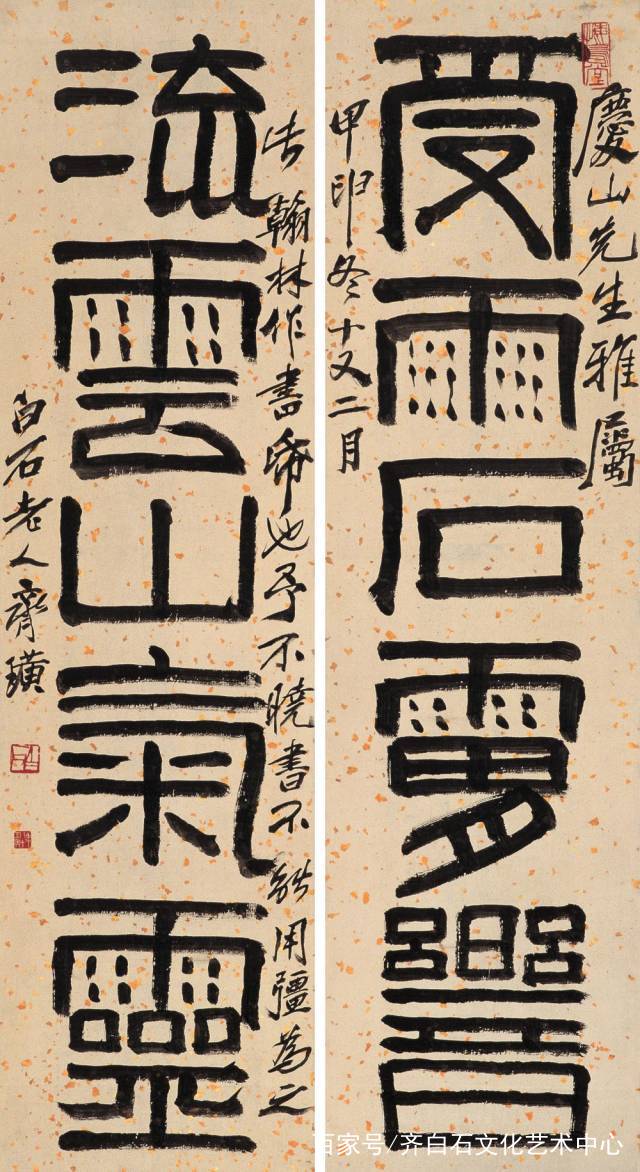 慶山先生雅屬
受雨石
甲申冬十又二月
此翰林作書帋也予不曉書不能用彊為之
流雲山氣靈
白石老人齊璜
百家号/齐白石文化艺术中心